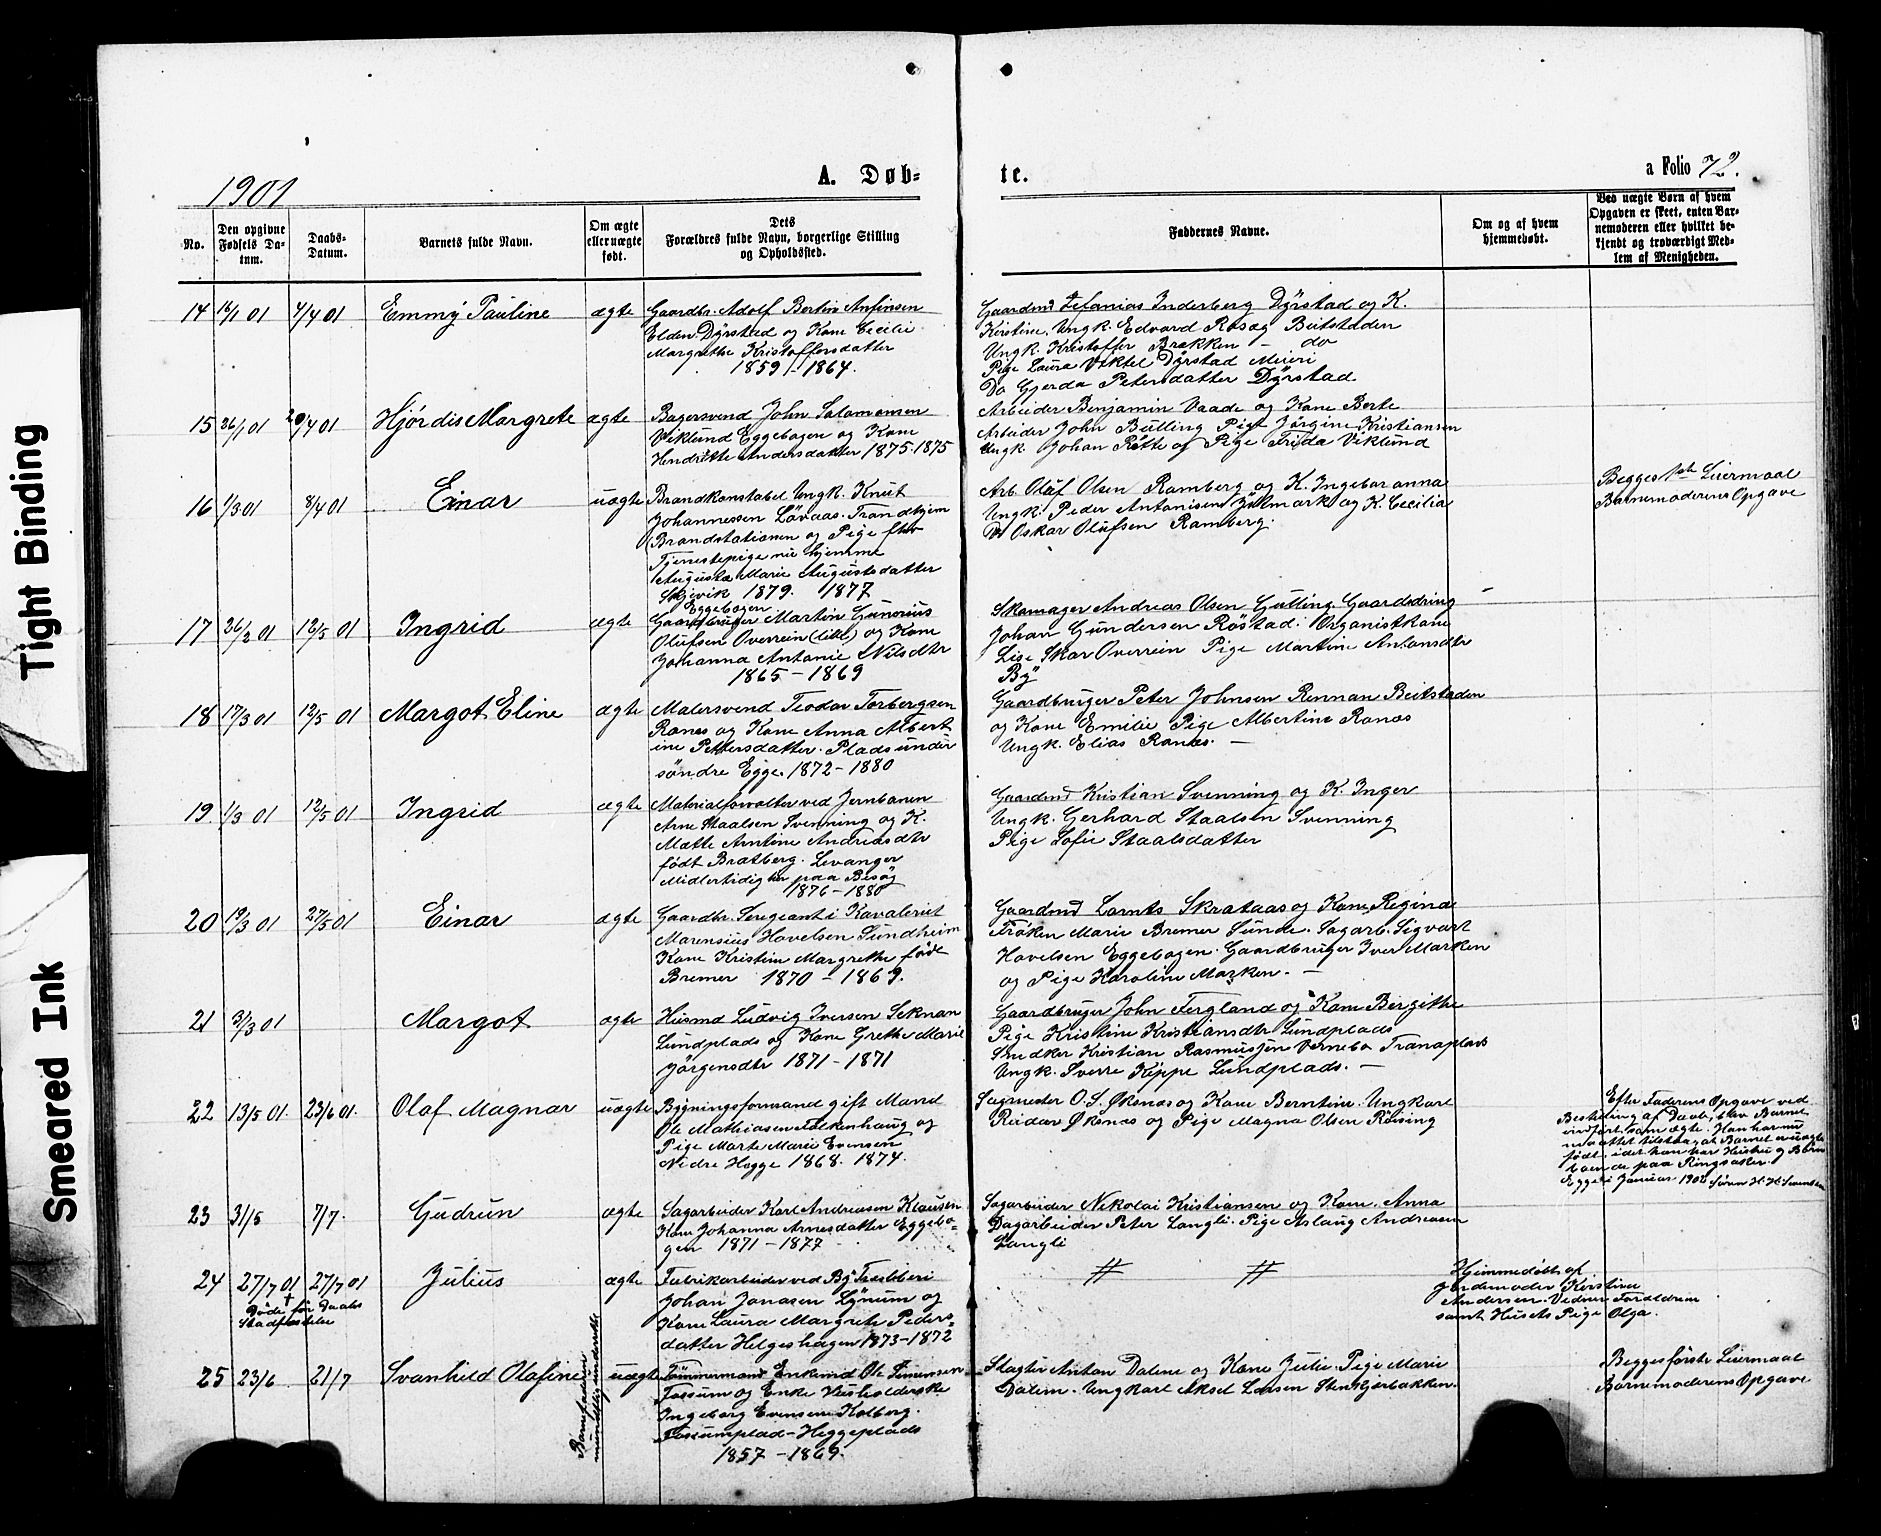 Tight Binding
Smeared Ink
1901
A. Døb-
te.
a Folio 72.
No.
Den opgivne Fødsels Da-
tum.
Daabs-
Datum.
Barnets fulde Navn.
Om ægte
eller uægte
født.
Dets
Forældres fulde Navn, borgerlige Stilling
og Opholdssted.
Faddernes Navne.
Om og af hvem
hjemmedøbt.
Ved uægte Børn af hvem
Opgaven er skeet, enten Bar-
nemoderen eller hvilket be-
kjendt og troværdigt Med-
lem af Menigheden.
14 16/1 01 4/4 01 Emmy Pauline ægte
Gaardbr. Adolf Bertin Anfinsen
Elden Dyrstad og Kone Cecilie
Margrethe Kristoffersdatter
1859 - 1864.
Gaardmd Zefanias Inderberg Dyrstad og K.
Kirstine. Ungk. Edvard Rosæg Beitstaden
Ungk. Kristoffer Brækken - do
Pige Laura Vektel Dyrstad Meieri
Do Gjerda Petersdatter Dyrstad
15 26/1 01 20/4 01 Hjørdis Margrete ægte
Bagersvend John Salamonsen
Viklund Eggebogen og Kone
Hendrikte Andersdatter 1875. 1875
Arbeider Benjamin Vaade og Kone Berte
Arbeider John Bulling Pige Jørgine Kristiansen
Ungk. Johan Røtte og Pige Frida Viklund
16 1/3 01 8/4 01 Einar uægte
Brandkonstabel Ungk. Knut
Johannessen Løvaas. Trondhjem
Brandstationen og Pige fhv
Tjenestepige nu hjemme
Augusta Marie Augustsdatter
Skjevik 1879. 1877
Arb. Oluf Olsen Ramberg og K. Ingebor anna
Ungk. Peder Antonisen Hjelmark og K. Cecilia
Do Oskar Olufsen Ramberg.
Begges 1ste Leiermaal
Barnemoderens Opgave
17 26/2 01 12/5 01 Ingrid ægte
Eggebogen
Gaardbruger Martin Gunerius
Olufsen Overrein (lille) og Kone
Johanna Antonie Nilsdtr
1865 - 1869
Skomager Andreas Olsen Gulling. Gaardsdreng
Johan Gundersen Røstad. Organistkone
Lise Skar Overrein Pige Martine Antonsdtr
By
18 17/3 01 12/5 01 Margot Eline ægte
Malersvend Teodor Torbergsen
Ranes og Kone Anna Albert
ine Pettersdatter. Plads under
søndre Egge. 1872 - 1880
Gaardbruger Peter Johnsen Rennan Beitstaden
og Kone Emilie Pige Albertine Ranes
Ungk. Elias Ranes. -
19 1/3 01 12/5 01 Ingrid ægte
Materialforvalter ved Jernbanen
Arne Staalsen Svenning og K.
Mette Arntine Andreasdtr
født Bratberg. Levanger
Midlertidig her paa Besøg
1876 - 1880
Gaardmd Kristian Svenning og K. Inger
Ungk. Gerhard Staalsen Svenning
Pige Sofie Staalsdatter
20 19/3 01 27/5 01 Einar ægte
Gaardbr. Sergeant i Kavaleriet
Marensius Havelsen Sundheim
Kone Kristine Margrethe født
Bremer 1870 - 1869.
Gaardmd Lornts Skrataas og Kone Regine
Frøken Marie Bremer Sunde. Sagarb. Sigvart
Havelsen Eggebogen. Gaardbruger Iver Marken
og Pige Karoline Marken. -
21 31/3 01 Margot ægte
Husmd Ludvig Iversen Seknan
Lundplads og Kone Grethe Marie
Jørgensdtr 1871 - 1871
Gaardbruger John Fergland og Kone Bergithe
Pige Kristine Kristiansdtr Lundplads
Snedker Kristian Rasmussen Vernebo Tranaplads
Ungk. Sverre Kippe Lundplads. -
22 13/5 01. 23/6 01. Olaf Magnar uægte
Bygningsformand gift Mand
Ole Mathiasen Falkenhaug og
Pige Marte Marie Evensen
Nedre Hegge 1868. 1874.
Sagmester O. S. Øksnes og Kone Berntine. Ungkarl
Reidar Øksnes og Pige Magna Olsen Røising
Efter Faderens Opgave ved
Bestilling af Daab, blev Barnet
indført som ægte. Han har nu
maattet tilstaa, at Barnet er uægte
født, idet han har Hustru og Børn
boende paa Ringsaker.
Egge i Januar 1902
23 31/5 7/7. Gudrun ægte
Sagarbeider Karl Andreasen Klausen
Kone Johanna Arnesdatter Eggebo-
gen 1871 - 1877
Sagarbeider Nikolai Kristiansen og Kone. Anna
Dagarbeider Peter Langli. Pige Aslaug Andreasen
Langli
24 27/7 01 27/7 01 Julius ægte
†
Døde før Daabs
Stadfæstelse
Fabrikarbeider ved By Træsliberi
Johan Jonasen Lynum og
Kone Laura Margrete Peders-
datter Helgeshagen 1873-1872
# #
Hjemmedøbt af
Jordemoder Kirstine
Andersen. Vidner Forældrene
samt Husets Pige Olga.
25 23/6 21/7 Svanhild Olafine uægte
Barnefaderen
Tømmermand Enkemd Ole Simensen
Fossum og Enke Husholderske
Ingeborg Evensen Kolberg.
Fossumplad - Heggeplads
1857 - 1869.
Slagter Anton Dalene og Kone Julie. Pige Marie
Dalem. Ungkarl Aksel Larsen Stenkjerbakken.
Begges første Leiermaal
Barnemoderens Opgave